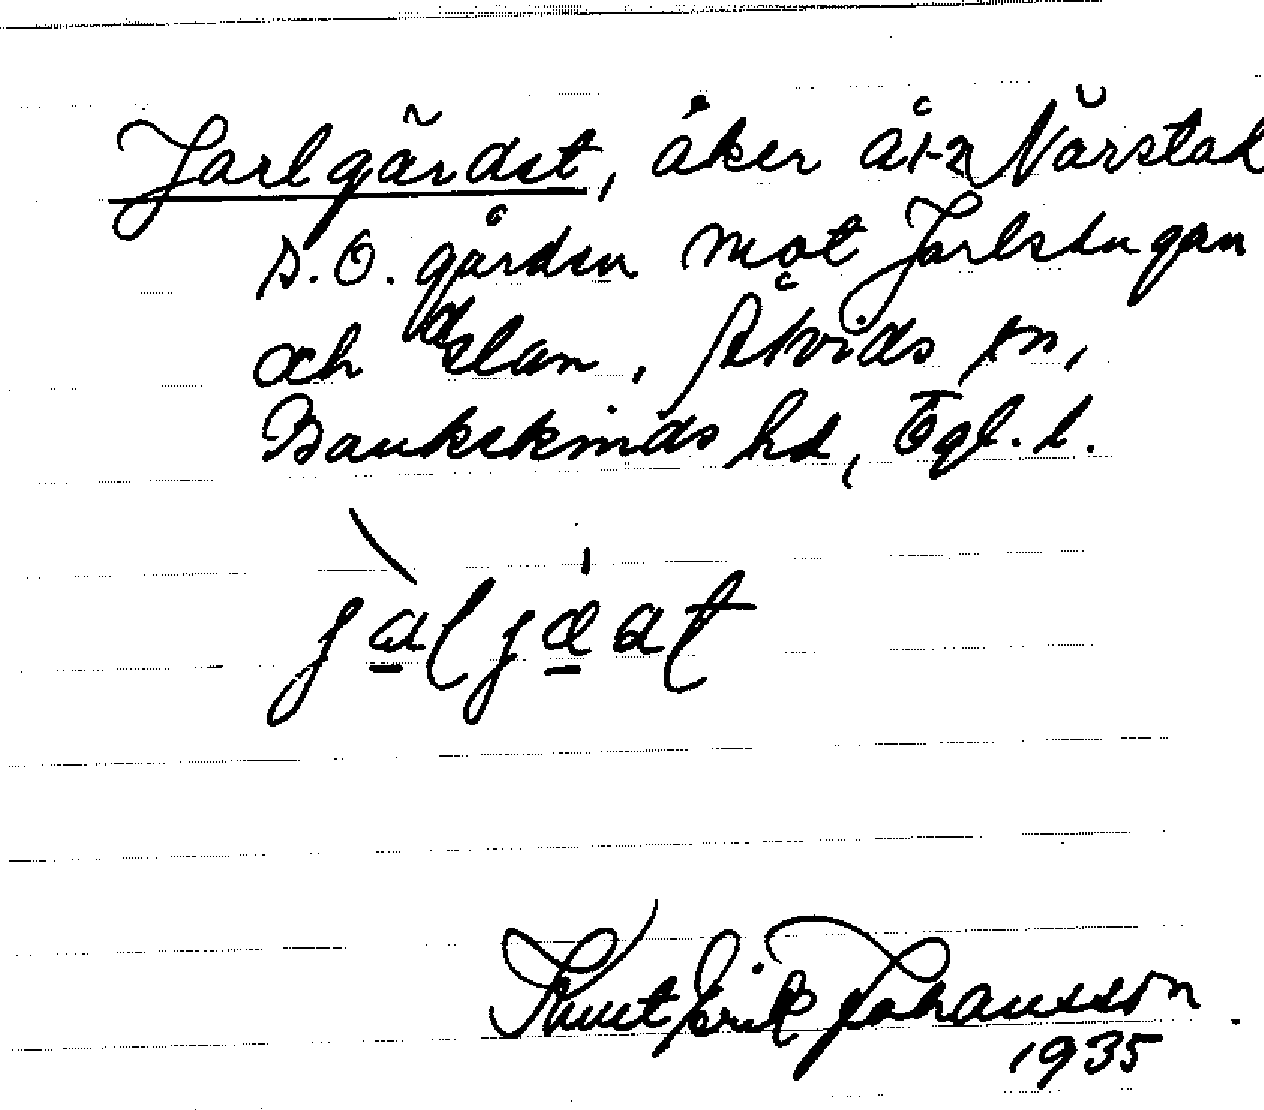 Jarlgärdet, åker åt Närstad
S.O. gården mot Jarlstugan
och elan, Åtvids sn,
Bankekinds hd, Ögl. l.
jaljæat
Knut Erik Johansson
1935